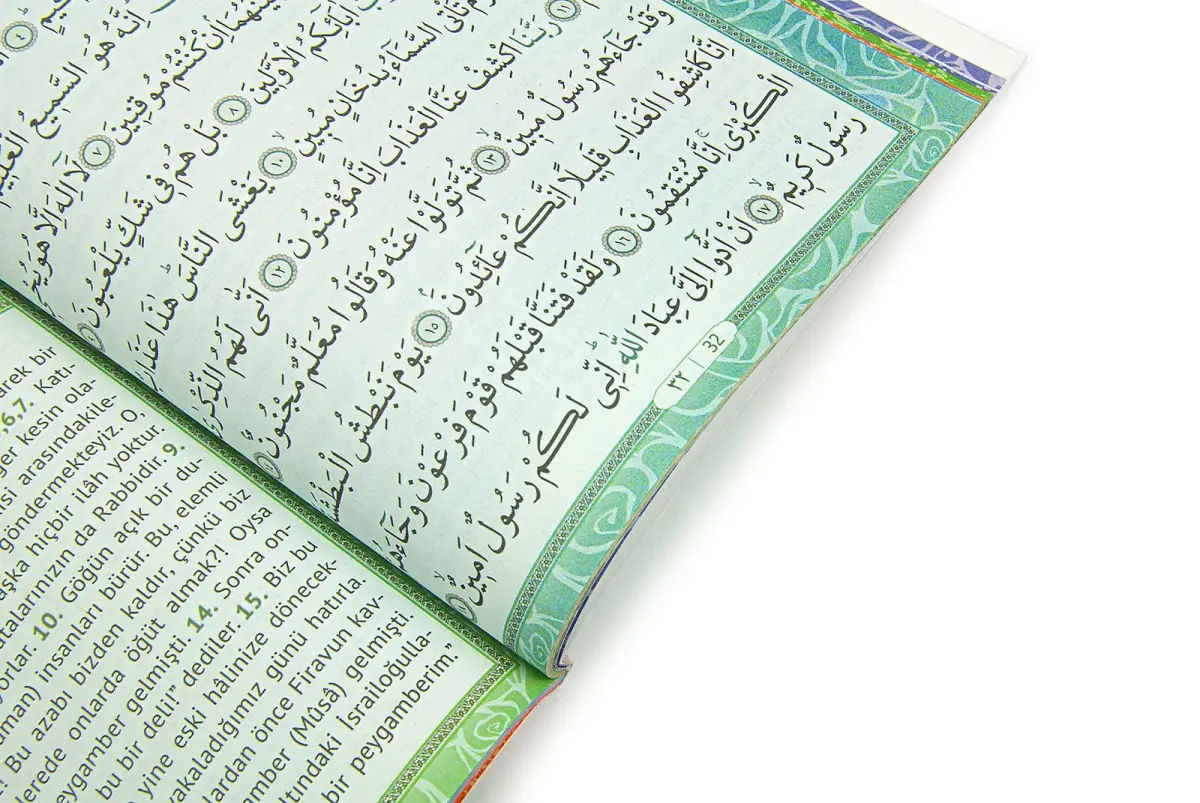 اِنَّهُ هُوَ السَّمِيعُ الْعَلِيمُ
اِنْ كُنْتُمْ مُوقِنِينَ ﴿٧﴾ لَٓا اِلٰهَ اِلَّا هُوَ
اٰبَٓائِكُمُ الْاَوَّلِينَ ﴿٨﴾ بَلْ هُمْ فِي شَكٍّ يَلْعَبُونَ
تَأْتِي السَّمَٓاءُ بِدُخَانٍ مُبِينٍ ﴿١٠﴾ يَغْشَى النَّاسَ هٰذَا عَذَابٌ
﴿١١﴾ رَبَّنَا اكْشِفْ عَنَّا الْعَذَابَ اِنَّا مُؤْمِنُونَ ﴿١٢﴾ اَنّٰى لَهُمُ الذِّكْرٰى
وَقَدْ جَٓاءَهُمْ رَسُولٌ مُبِينٌ ﴿١٣﴾ ثُمَّ تَوَلَّوْا عَنْهُ وَقَالُوا مُعَلَّمٌ مَجْنُونٌ
اِنَّا كَاشِفُوا الْعَذَابِ قَلِيلًا اِنَّكُمْ عَٓائِدُونَ ﴿١٥﴾ يَوْمَ نَبْطِشُ الْبَطْشَةَ
الْكُبْرٰى اِنَّا مُنْتَقِمُونَ ﴿١٦﴾ وَلَقَدْ فَتَنَّا قَبْلَهُمْ قَوْمَ فِرْعَوْنَ وَجَٓاءَهُمْ
رَسُولٌ كَرِيمٌ ﴿١٧﴾ اَنْ اَدُّٓوا اِلَيَّ عِبَادَ اللّٰهِ اِنِّي لَكُمْ رَسُولٌ اَمِينٌ
٣٢ | 32
bir
,6,7. Katı-
kesin ola-
arasındakile-
göndermekteyiz. O,
başka hiçbir ilâh yoktur.
atalarınızın da Rabbidir. 9.
10. Göğün açık bir du-
insanları bürür. Bu, elemli
Bu azabı bizden kaldır, çünkü biz
nerede onlarda öğüt almak?! Oysa
peygamber gelmişti. 14. Sonra on-
bu bir deli!" dediler. 15. Biz bu
yine eski hâlinize dönecek-
yakaladığımız günü hatırla.
onlardan önce Firavun kav
(Mûsâ) gelmişti.
altındaki İsrailoğulla-
bir peygamberim."